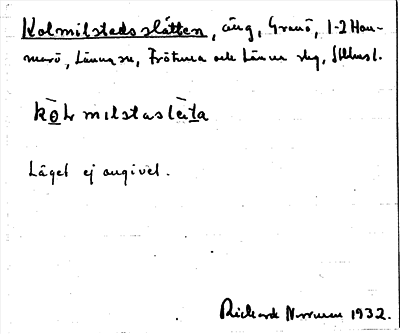 Kolmilstedsslåtten, äng, Granö, 1-2 Ham-
marö, Länna sn, Frötuna och Länna slg, Sthlms l.
kōl milstaslę̄ta
Läget ej angivet.
Rickard 1932.